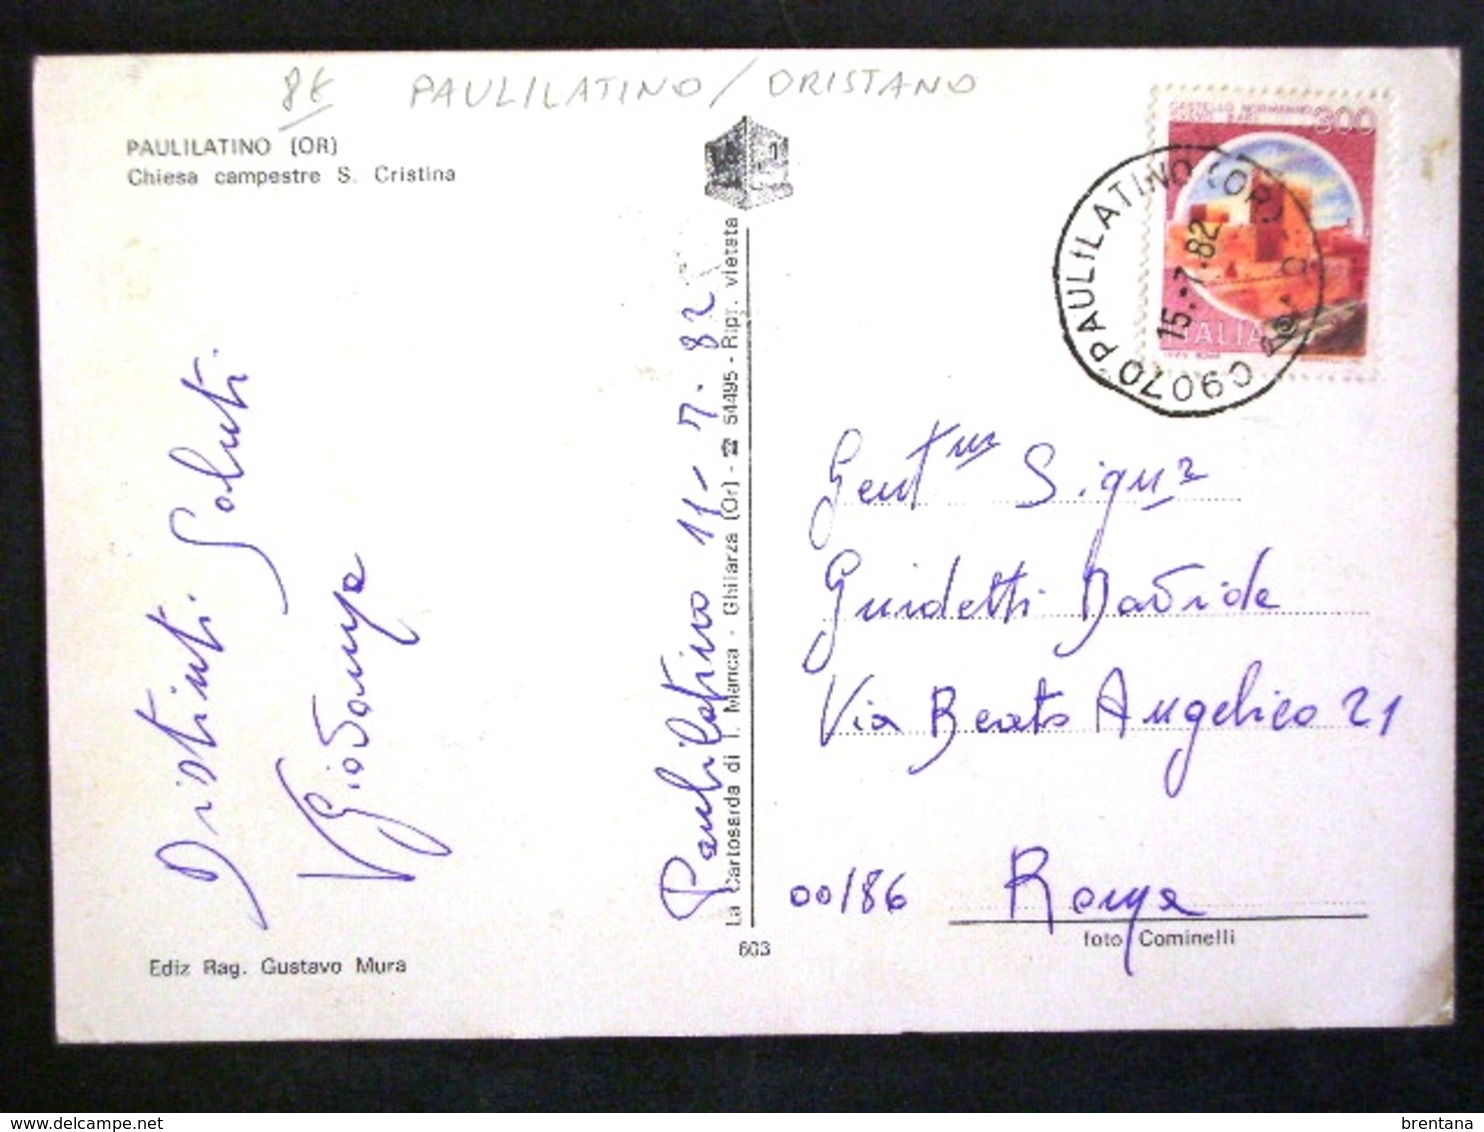 8€ PAULILATINO / ORISTANO
PAULILATINO (OR)
Chiesa campestre S. Cristina
CASTELLO NORMANNO
SVEVO BARI
300
ITALIA
09070 PAULILATINO (OR)
15.-7.82
Distinti Saluti
Paulilatino 11-7.82
La Cartosarda di T. Manca - Ghilarza (Or) - ☎ 54495 - Ripr. vietata
603
Gent
Guidetti Davide
Via Beato Angelico 21
00186 Roma
foto Cominelli
Ediz Rag. Gustavo Mura
brentana